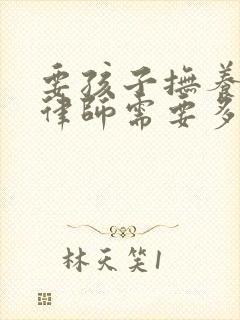 要孩子撫養
律師需要多
林天笑1